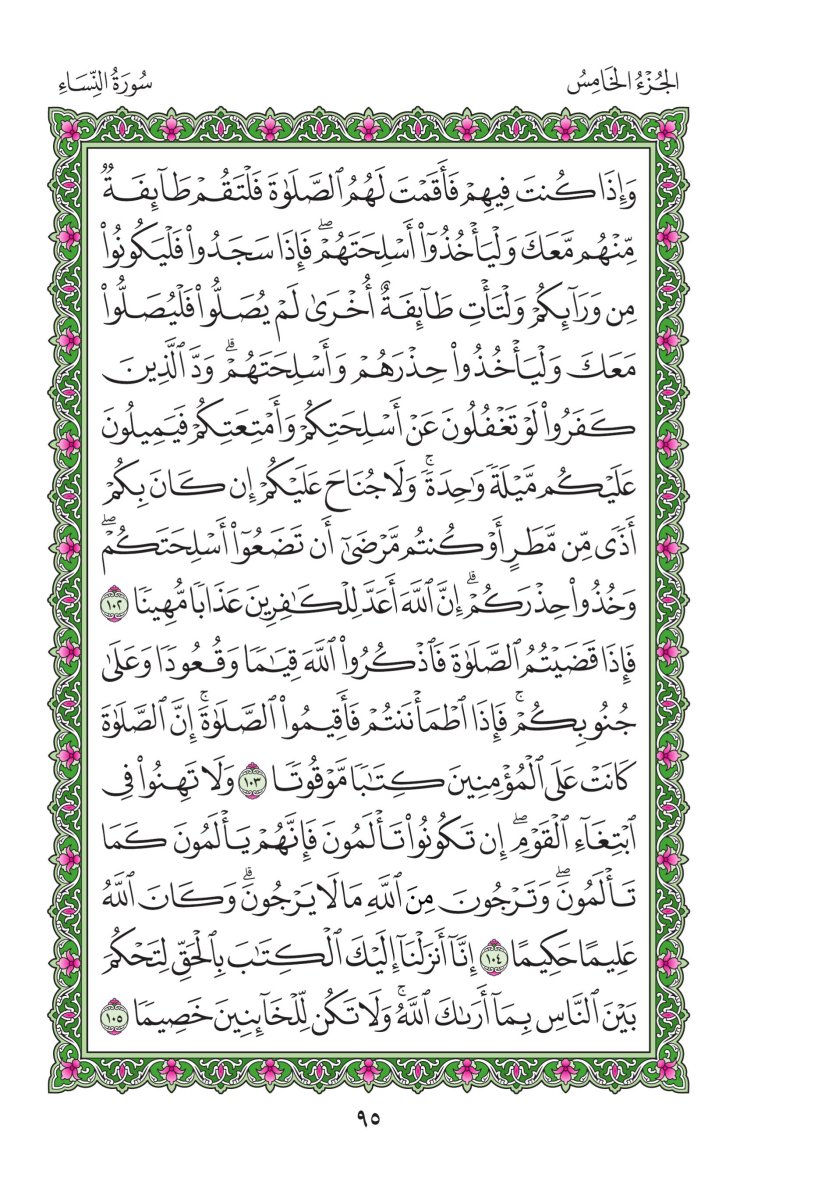 الجُزْءُ الخَامِسُ
سُورَةُ النِّسَاءِ
وَإِذَا كُنتَ فِيهِمۡ فَأَقَمۡتَ لَهُمُ ٱلصَّلَوٰةَ فَلۡتَقُمۡ طَآئِفَةٞ
مِّنۡهُم مَّعَكَ وَلۡيَأۡخُذُوٓاْ أَسۡلِحَتَهُمۡۖ فَإِذَا سَجَدُواْ فَلۡيَكُونُواْ
مِن وَرَآئِكُمۡ وَلۡتَأۡتِ طَآئِفَةٌ أُخۡرَىٰ لَمۡ يُصَلُّواْ فَلۡيُصَلُّواْ
مَعَكَ وَلۡيَأۡخُذُواْ حِذۡرَهُمۡ وَأَسۡلِحَتَهُمۡۗ وَدَّ ٱلَّذِينَ
كَفَرُواْ لَوۡ تَغۡفُلُونَ عَنۡ أَسۡلِحَتِكُمۡ وَأَمۡتِعَتِكُمۡ فَيَمِيلُونَ
عَلَيۡكُم مَّيۡلَةٗ وَٰحِدَةٗۚ وَلَا جُنَاحَ عَلَيۡكُمۡ إِن كَانَ بِكُمۡ
أَذٗى مِّن مَّطَرٍ أَوۡ كُنتُم مَّرۡضَىٰٓ أَن تَضَعُوٓاْ أَسۡلِحَتَكُمۡۖ
وَخُذُواْ حِذۡرَكُمۡۗ إِنَّ ٱللَّهَ أَعَدَّ لِلۡكَٰفِرِينَ عَذَابٗا مُّهِينٗا ١٠٢
فَإِذَا قَضَيۡتُمُ ٱلصَّلَوٰةَ فَٱذۡكُرُواْ ٱللَّهَ قِيَٰمٗا وَقُعُودٗا وَعَلَىٰ
جُنُوبِكُمۡۚ فَإِذَا ٱطۡمَأۡنَنتُمۡ فَأَقِيمُواْ ٱلصَّلَوٰةَۚ إِنَّ ٱلصَّلَوٰةَ
كَانَتۡ عَلَى ٱلۡمُؤۡمِنِينَ كِتَٰبٗا مَّوۡقُوتٗا ١٠٣ وَلَا تَهِنُواْ فِي
ٱبۡتِغَآءِ ٱلۡقَوۡمِۖ إِن تَكُونُواْ تَأۡلَمُونَ فَإِنَّهُمۡ يَأۡلَمُونَ كَمَا
تَأۡلَمُونَۖ وَتَرۡجُونَ مِنَ ٱللَّهِ مَا لَا يَرۡجُونَۗ وَكَانَ ٱللَّهُ
عَلِيمًا حَكِيمًا ١٠٤ إِنَّآ أَنزَلۡنَآ إِلَيۡكَ ٱلۡكِتَٰبَ بِٱلۡحَقِّ لِتَحۡكُمَ
بَيۡنَ ٱلنَّاسِ بِمَآ أَرَىٰكَ ٱللَّهُۚ وَلَا تَكُن لِّلۡخَآئِنِينَ خَصِيمٗا ١٠٥
٩٥